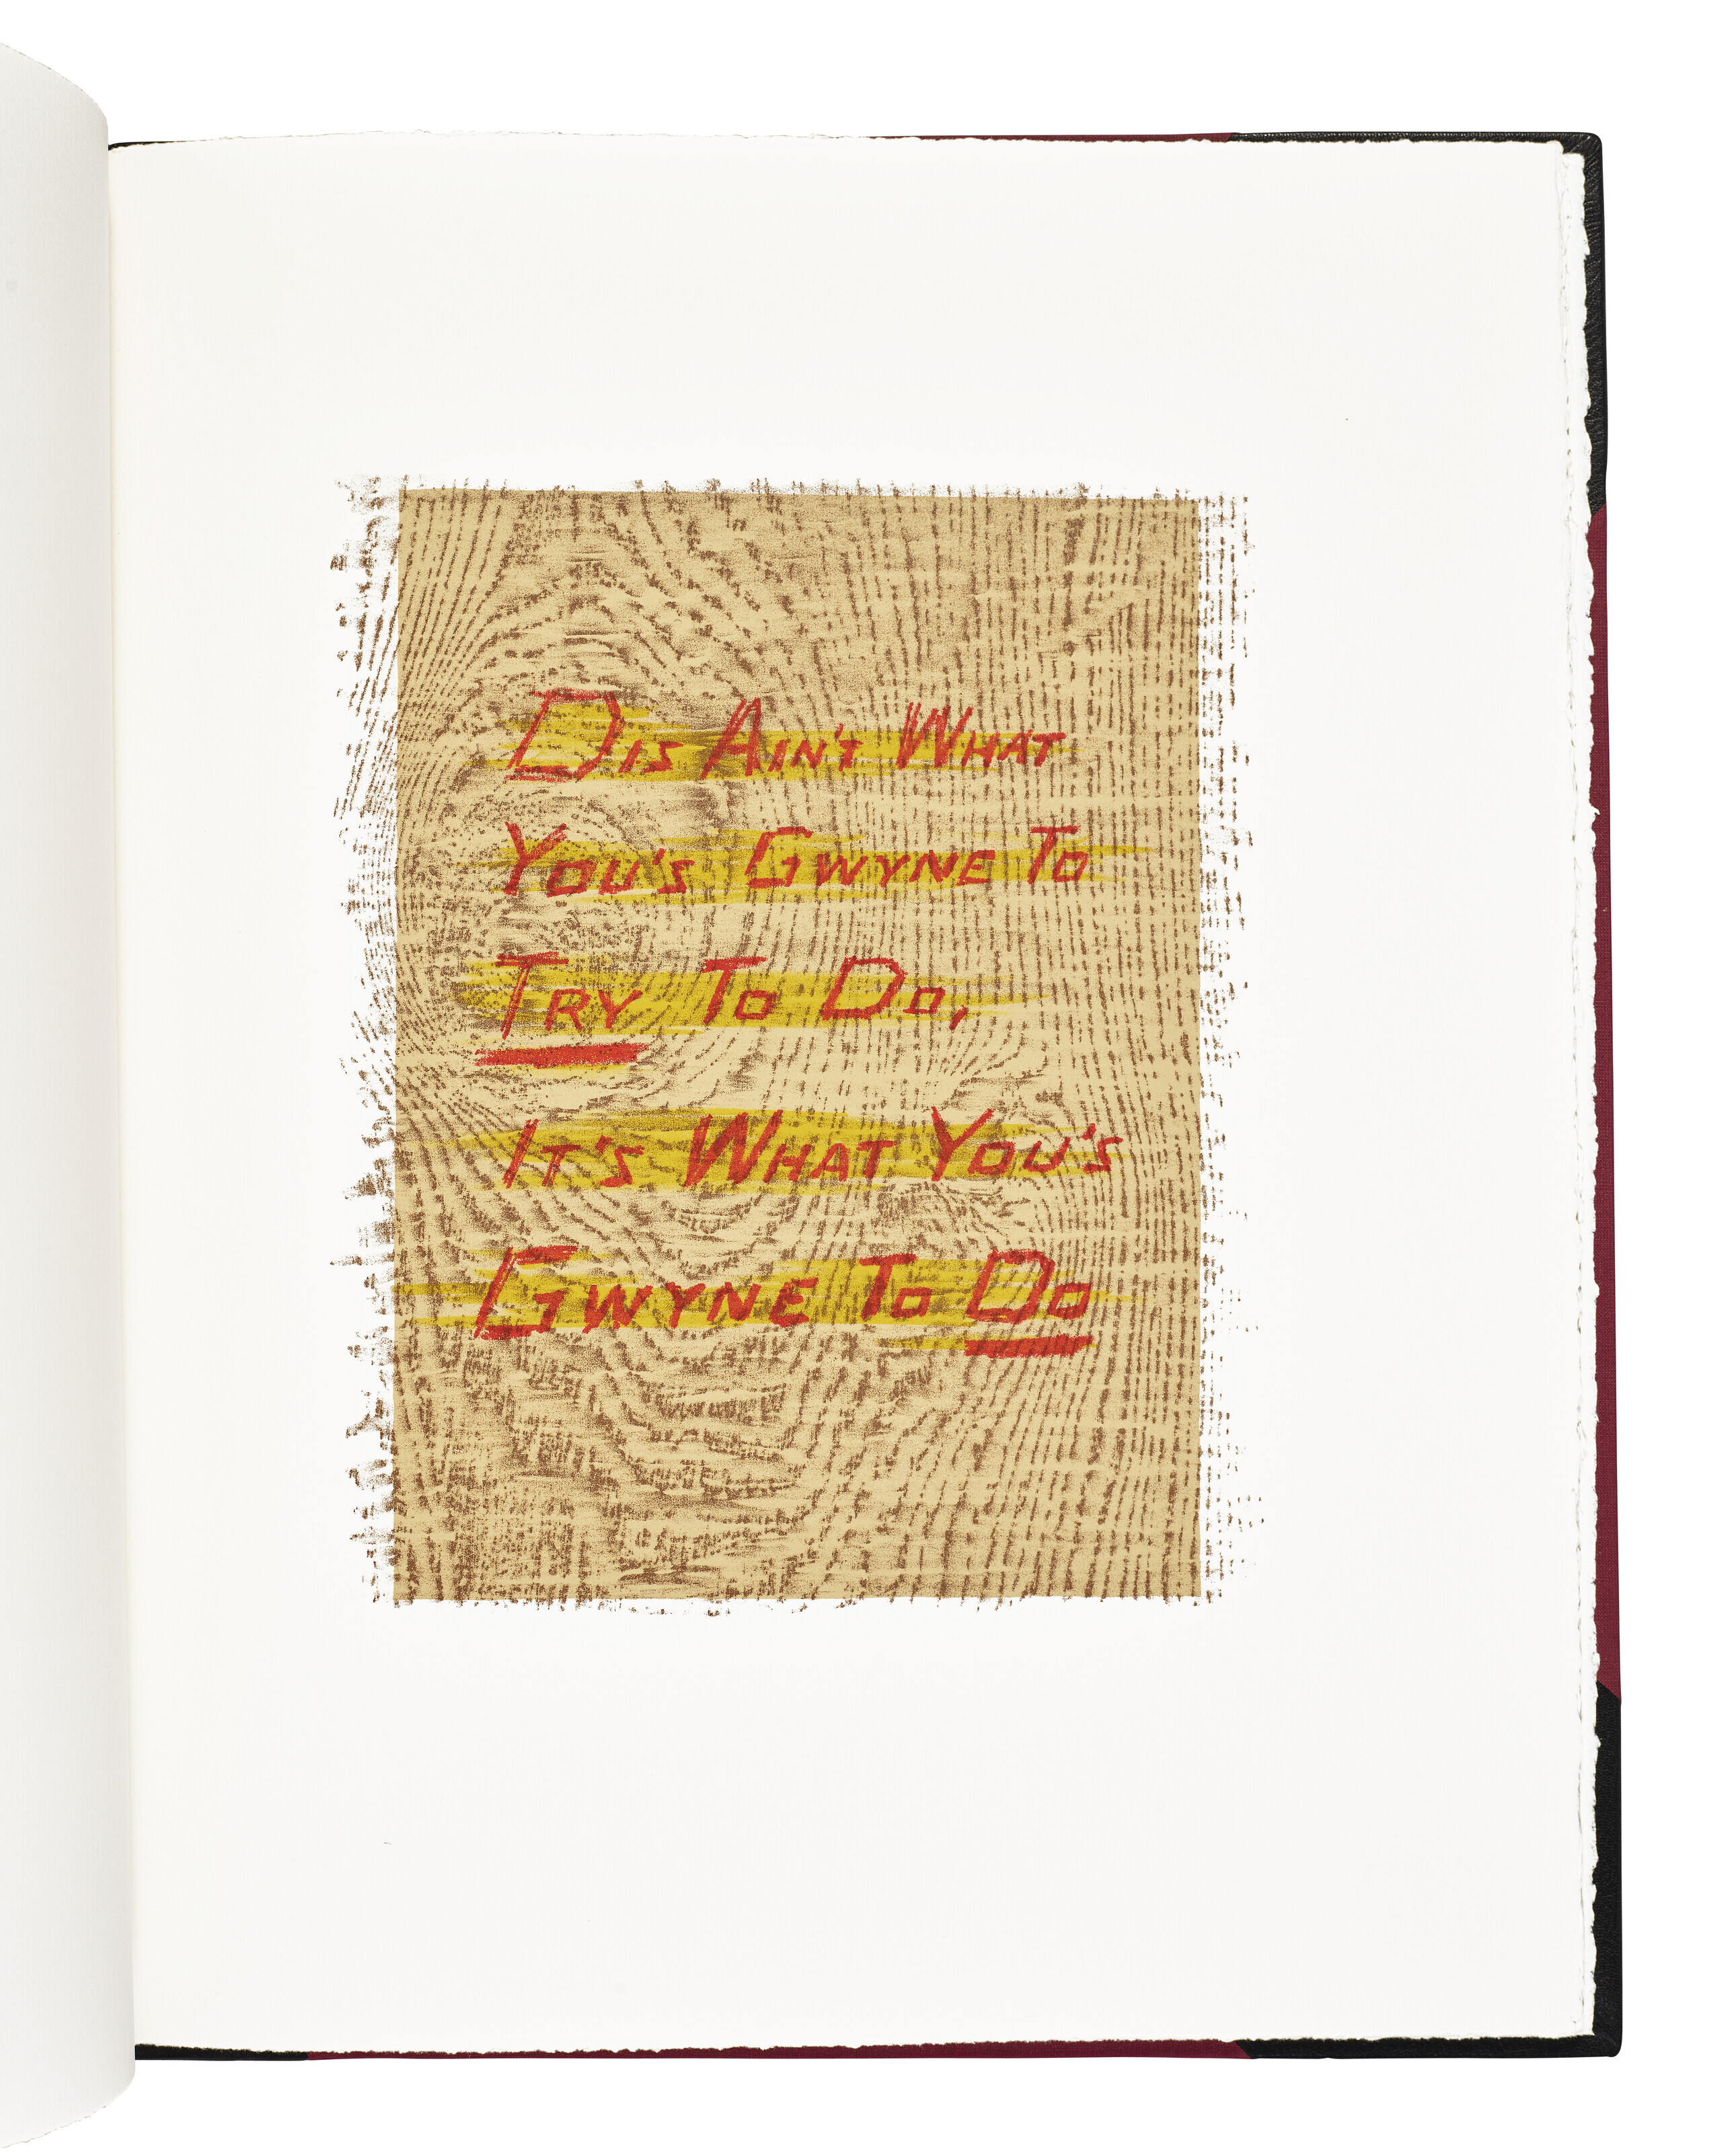 Dis Ain't What
You's Gwyne To
Try To Do,
It's What You's
Gwyne To Do